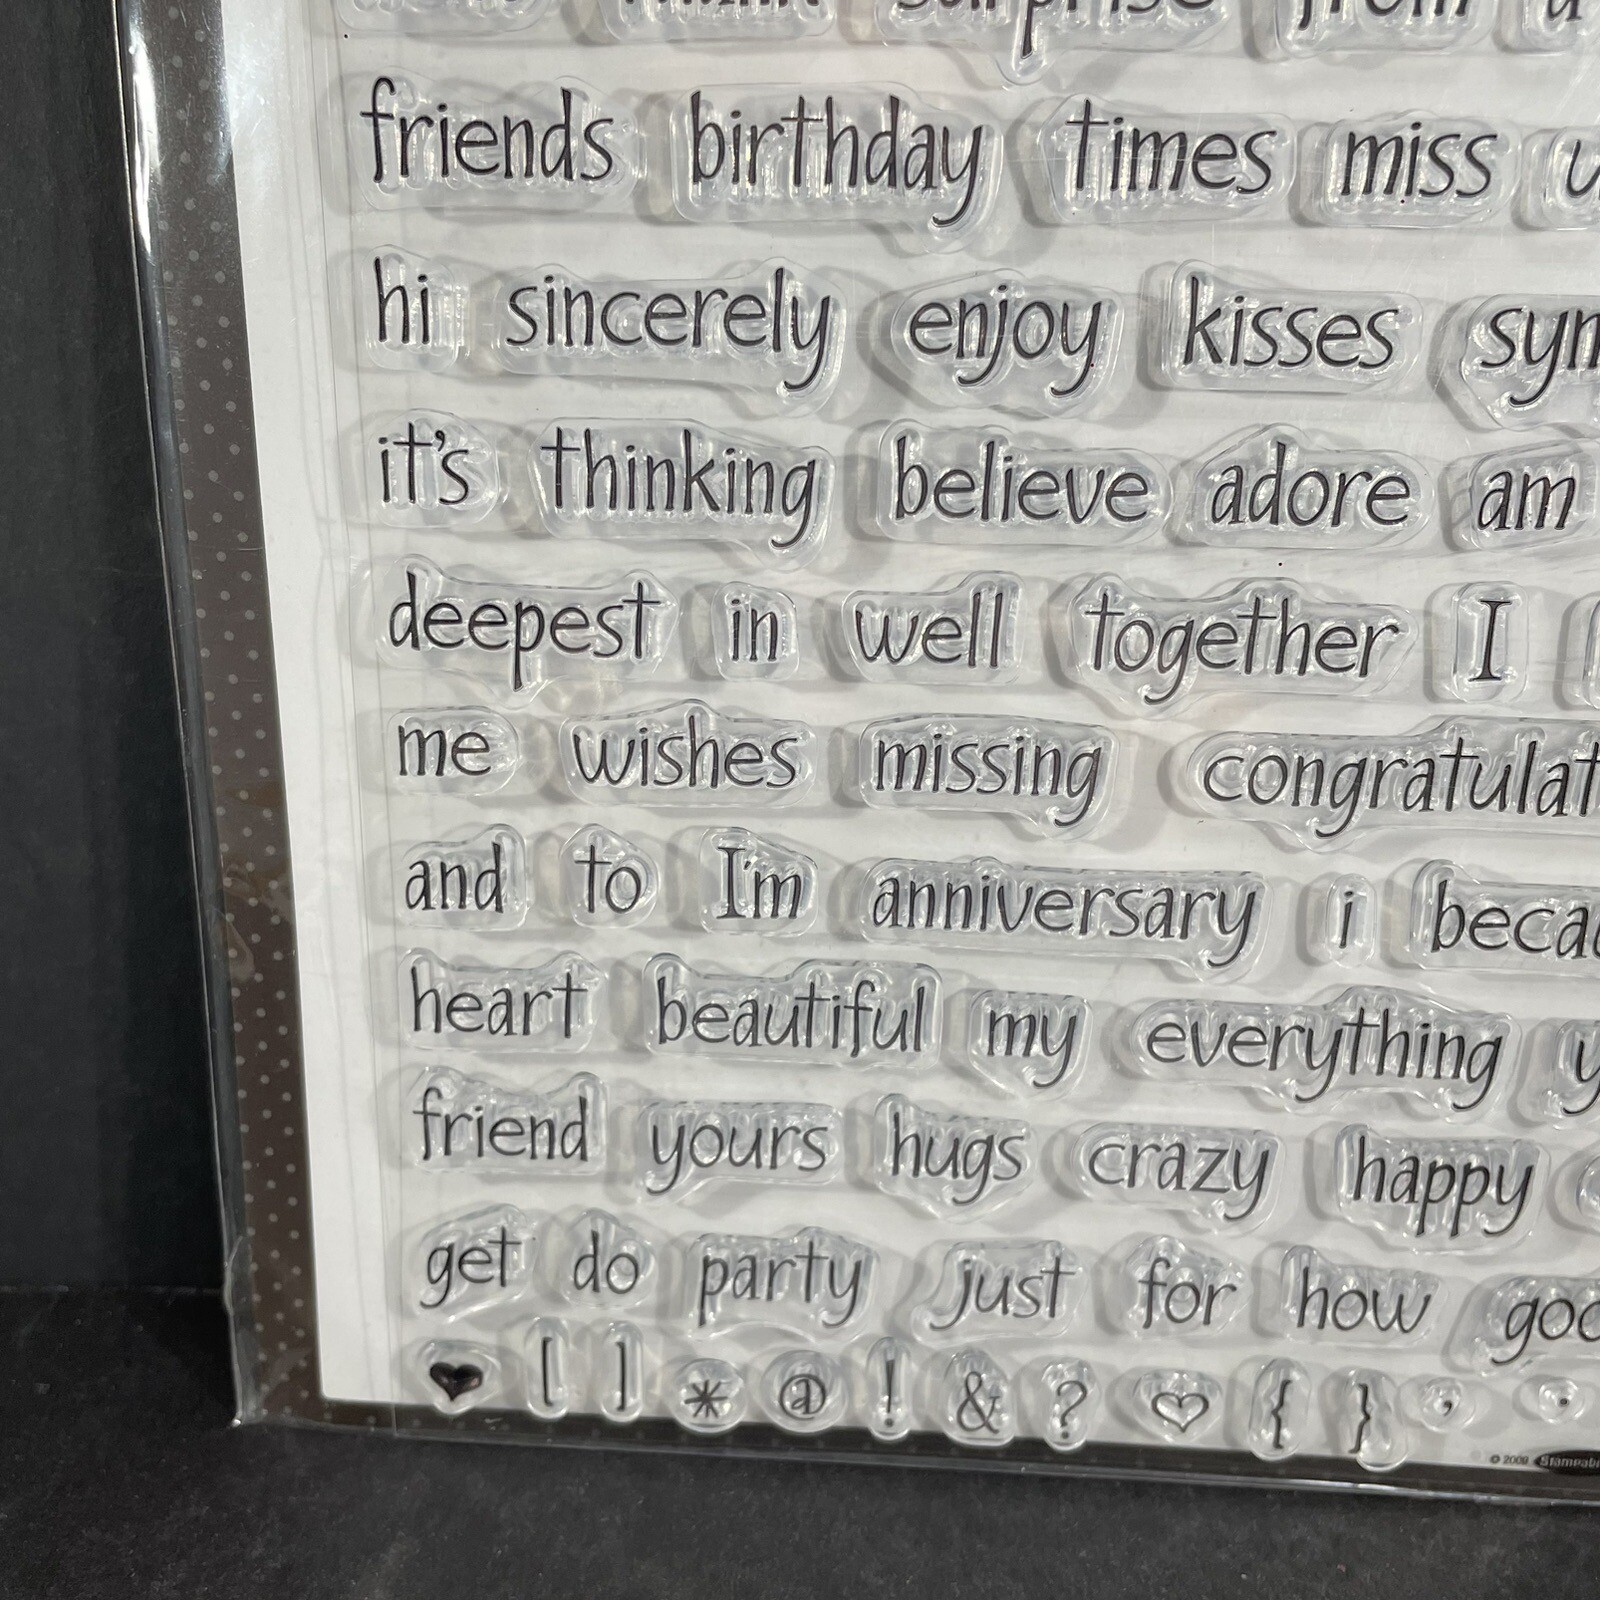 surprise from a
friends birthday times miss
hi sincerely enjoy kisses
it's thinking believe adore am
deepest in well together I
me wishes missing congratulat
and to I'm anniversary i beca
heart beautiful my everything y
friend yours hugs crazy happy
get do party just for how goo
♥ [ ] * @ ! & ? ♡ { } , .
© 2009 Stampabi